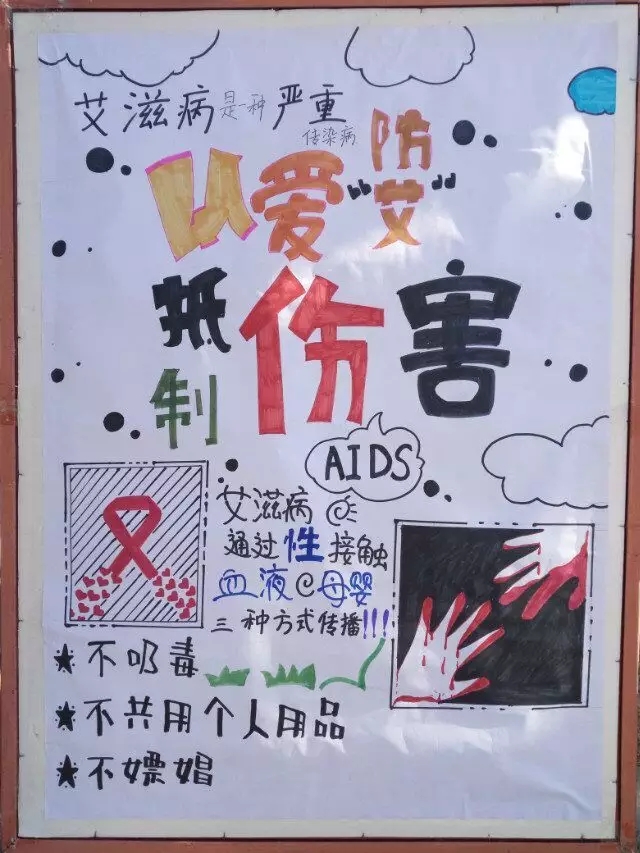 艾滋病是一种严重
传染病
以爱“防艾”
抵制伤害
AIDS
艾滋病
通过性接触
血液母婴
三种方式传播!!!
★不吸毒
★不共用个人用品
★不嫖娼